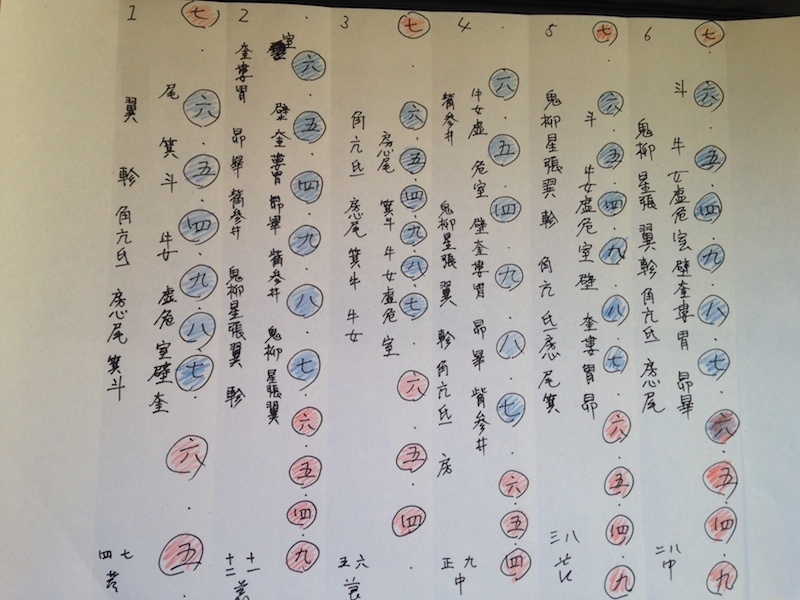 1
七・六・五・四・九・八・七・六・五
尾 箕斗 牛女 虚危 室壁奎
翼 軫 角亢氐 房心尾 箕斗
七
四
2
六・五・四・九・八・七・六・五・四・九
室
壁 奎婁胃 昴畢 觜参井 鬼柳 星張翼
奎婁胃 昴畢 觜参井 鬼柳星張翼 軫
十一
十二
3
七・六・五・四・九・八・七・六・五・四
房心尾 箕斗 牛女虚危 室
角亢氐 房心尾 箕牛 牛女
六
五
4
六・五・四・九・八・七・六・五・四
牛女虚 危室 壁奎婁胃 昴畢 觜参井
觜参井 鬼柳星張 翼 軫角亢氐 房
九
正
中
5
七・六・五・四・九・八・七・六・五・四・九
斗 牛女虚危室壁 奎婁胃昴
鬼柳星張翼 軫 角亢氐房心尾箕
八
三
6
七・六・五・四・九・八・七・六・五・四・九
斗 牛 女虚危室壁奎婁胃 昴畢
鬼柳 星張 翼軫角亢氐 房心尾
八
二
中